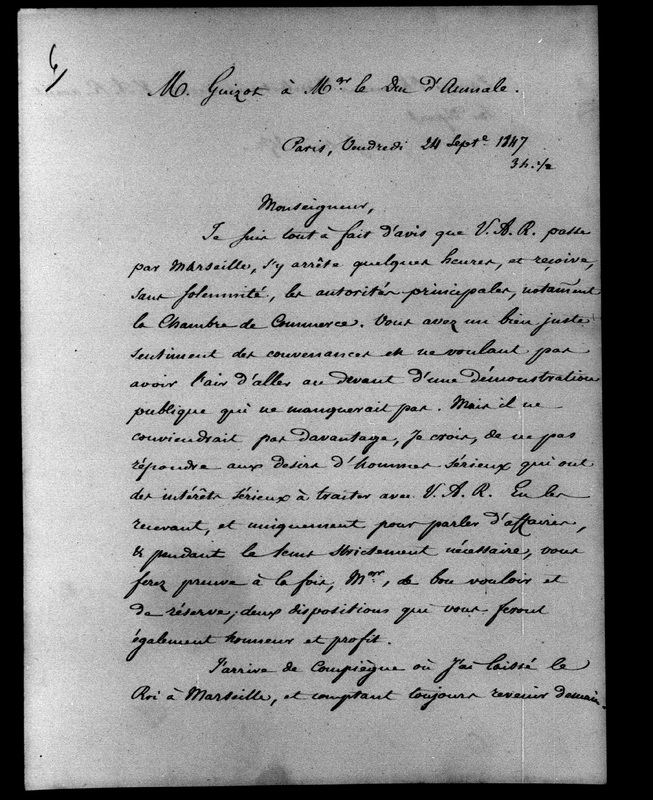 M. Guizot à Mgr le Duc d'Aumale.
Paris, Vendredi 24 Septe 1847
3 h. 1/2
Monseigneur,
Je suis tout à fait d'avis que V.A.R. passe
par Marseille, s'y arrête quelques heures, et reçoive,
sans solennité, les autorités principales, notamment
la Chambre de Commerce. Vous avez un bien juste
sentiment des convenances en ne voulant pas
avoir l'air d'aller au devant d'une démonstration
publique qui ne manquerait pas. Mais il ne
conviendrait pas davantage, je crois, de ne pas
répondre aux desirs d'hommes sérieux qui ont
des intérêts sérieux à traiter avec V.A.R. En les
recevant, et uniquement pour parler d'affaires,
& pendant le tems strictement nécessaire, vous
ferez preuve à la fois, Mgr, de bon vouloir et
de réserve; deux dispositions qui vous feront
également honneur et profit.
J'arrive de Compiègne où j'ai laissé le
Roi à Marseille, et comptant toujours revenir demain.